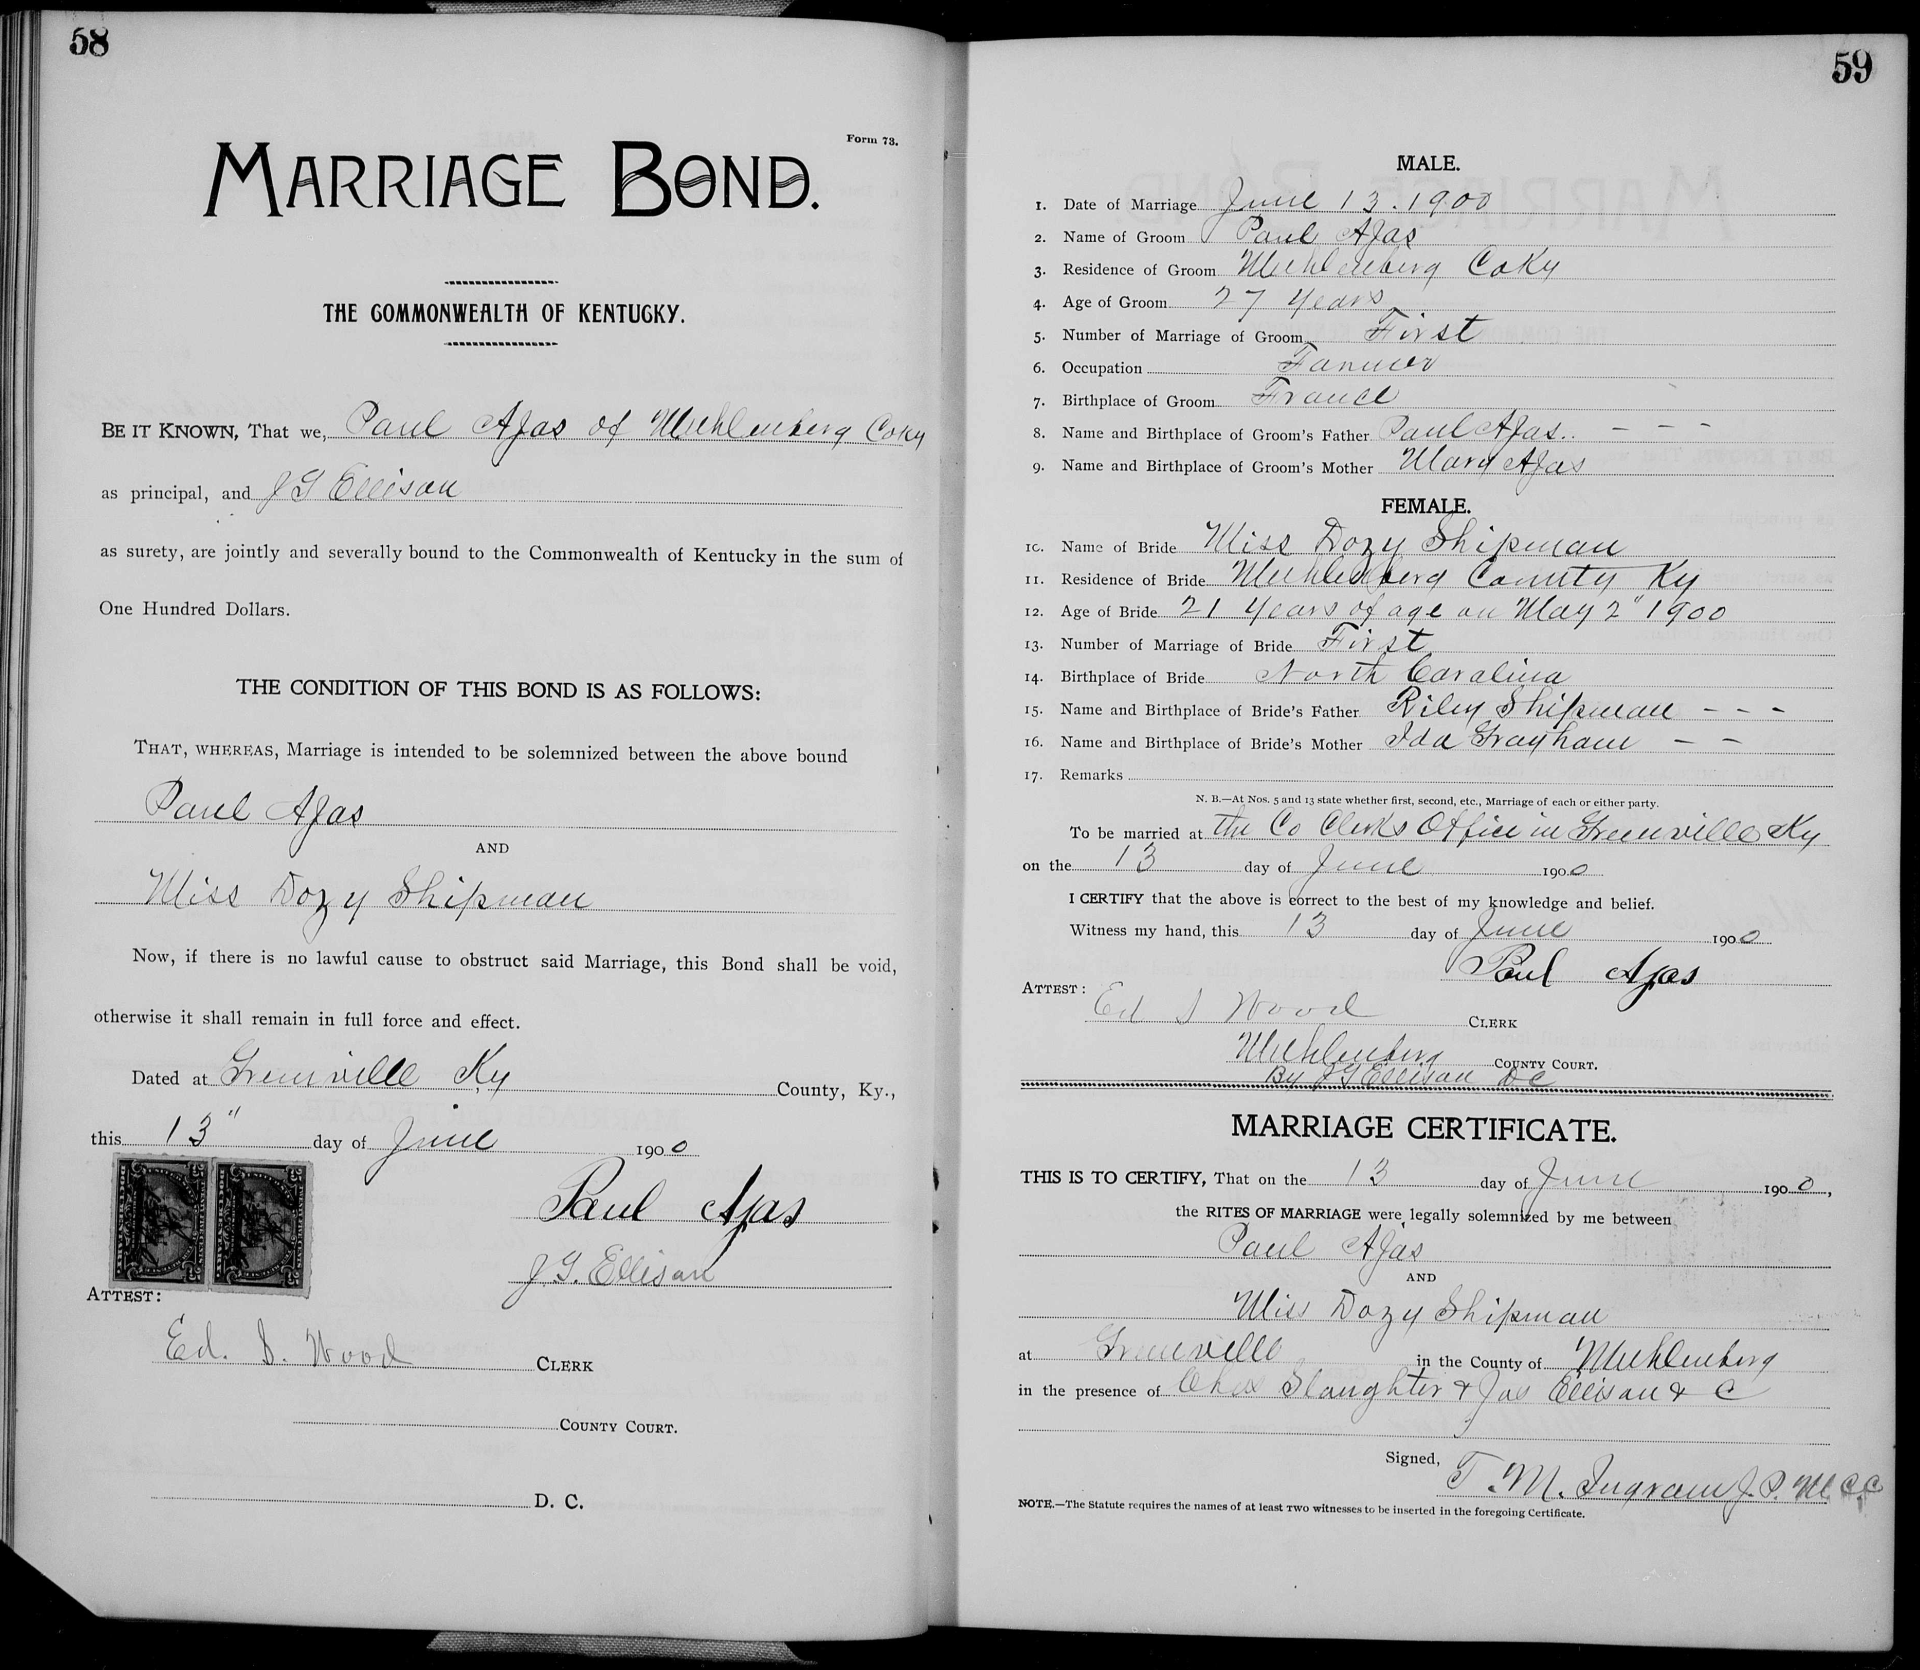 58
Form 73.
MARRIAGE BOND.
THE COMMONWEALTH OF KENTUCKY.
BE IT KNOWN, That we, Paul Ajas of Muhlenberg Co Ky
as principal, and J G Ellison
as surety, are jointly and severally bound to the Commonwealth of Kentucky in the sum of
One Hundred Dollars.
THE CONDITION OF THIS BOND IS AS FOLLOWS:
THAT, WHEREAS, Marriage is intended to be solemnized between the above bound
Paul Ajas
AND
Miss Dozy Shipman
Now, if there is no lawful cause to obstruct said Marriage, this Bond shall be void,
otherwise it shall remain in full force and effect.
Dated at Greenville Ky County, Ky.,
this 13" day of June 1900
Paul Ajas
J. G. Ellison
ATTEST:
Ed. S. Wood CLERK
COUNTY COURT.
D. C.
59
MALE.
1. Date of Marriage June 13. 1900
2. Name of Groom Paul Ajas
3. Residence of Groom Muhlenberg Co Ky
4. Age of Groom 27 years
5. Number of Marriage of Groom First
6. Occupation Farmer
7. Birthplace of Groom France
8. Name and Birthplace of Groom's Father Paul Ajas. - - -
9. Name and Birthplace of Groom's Mother Mary Ajas
FEMALE.
10. Name of Bride Miss Dozy Shipman
11. Residence of Bride Muhlenberg County Ky
12. Age of Bride 21 years of age on May 2" 1900
13. Number of Marriage of Bride First
14. Birthplace of Bride North Carolina
15. Name and Birthplace of Bride's Father Riley Shipman - - -
16. Name and Birthplace of Bride's Mother Ida Grayham - -
17. Remarks
N. B.—At Nos. 5 and 13 state whether first, second, etc., Marriage of each or either party.
To be married at the Co Clerks Office in Greenville Ky
on the 13 day of June 1900
I CERTIFY that the above is correct to the best of my knowledge and belief.
Witness my hand, this 13 day of June 1900
Paul Ajas
ATTEST:
Ed S Wood CLERK
Muhlenberg COUNTY COURT.
By J G Ellison DC
MARRIAGE CERTIFICATE.
THIS IS TO CERTIFY, That on the 13 day of June 1900,
the RITES OF MARRIAGE were legally solemnized by me between
Paul Ajas
AND
Miss Dozy Shipman
at Greenville in the County of Muhlenberg
in the presence of Ches Slaughter & Jas Ellison & C
Signed,
T. M. Ingram J. P. M C C
NOTE.—The Statute requires the names of at least TWO witnesses to be inserted in the foregoing Certificate.